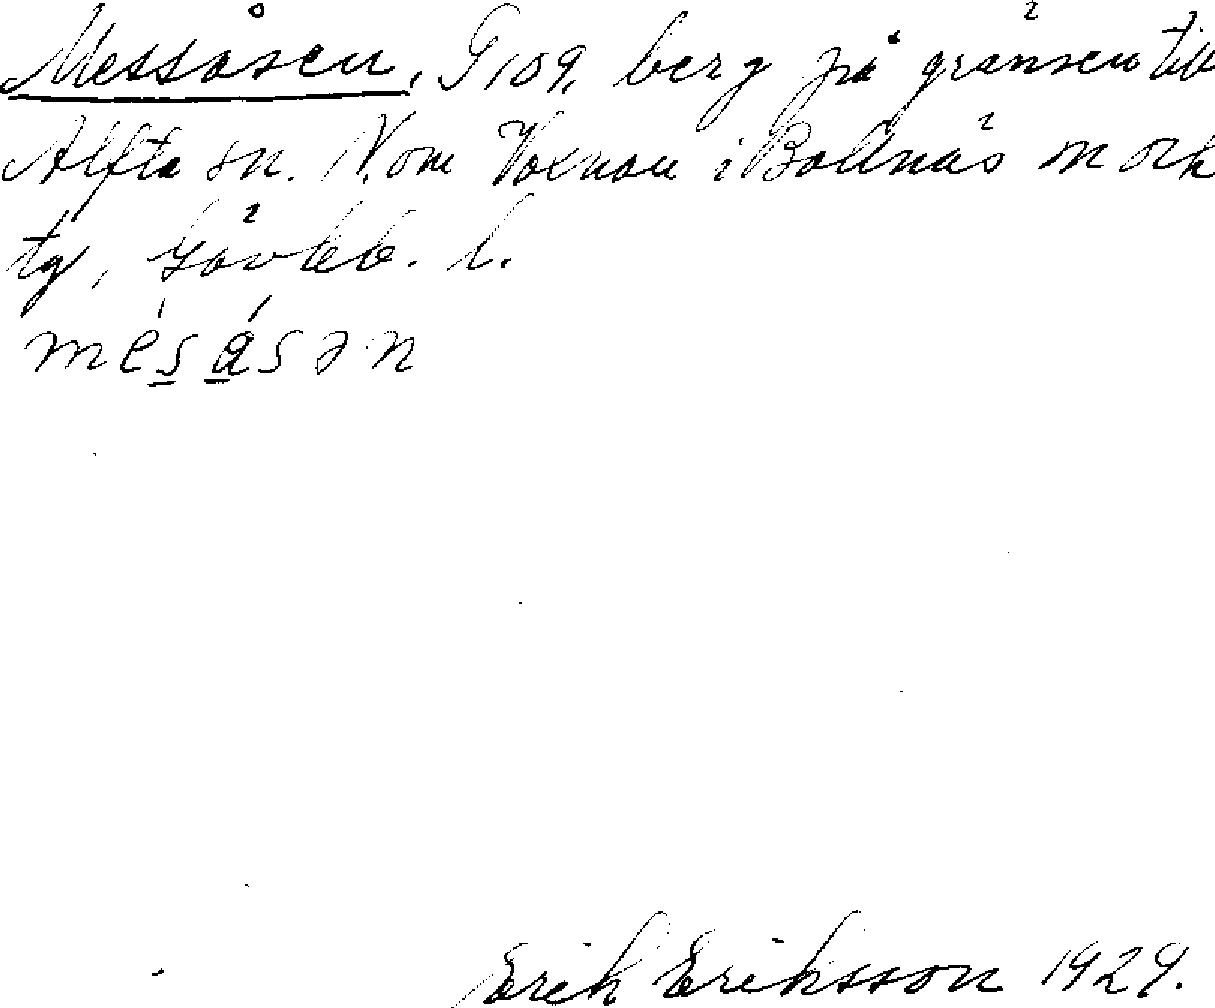 Messåsen, G 109, berg på gränsen till
Alfta sn. N. om Voxnan i Bollnäs sn och
tg, Gävleb. l.
mèsásən
Erik Eriksson 1929.